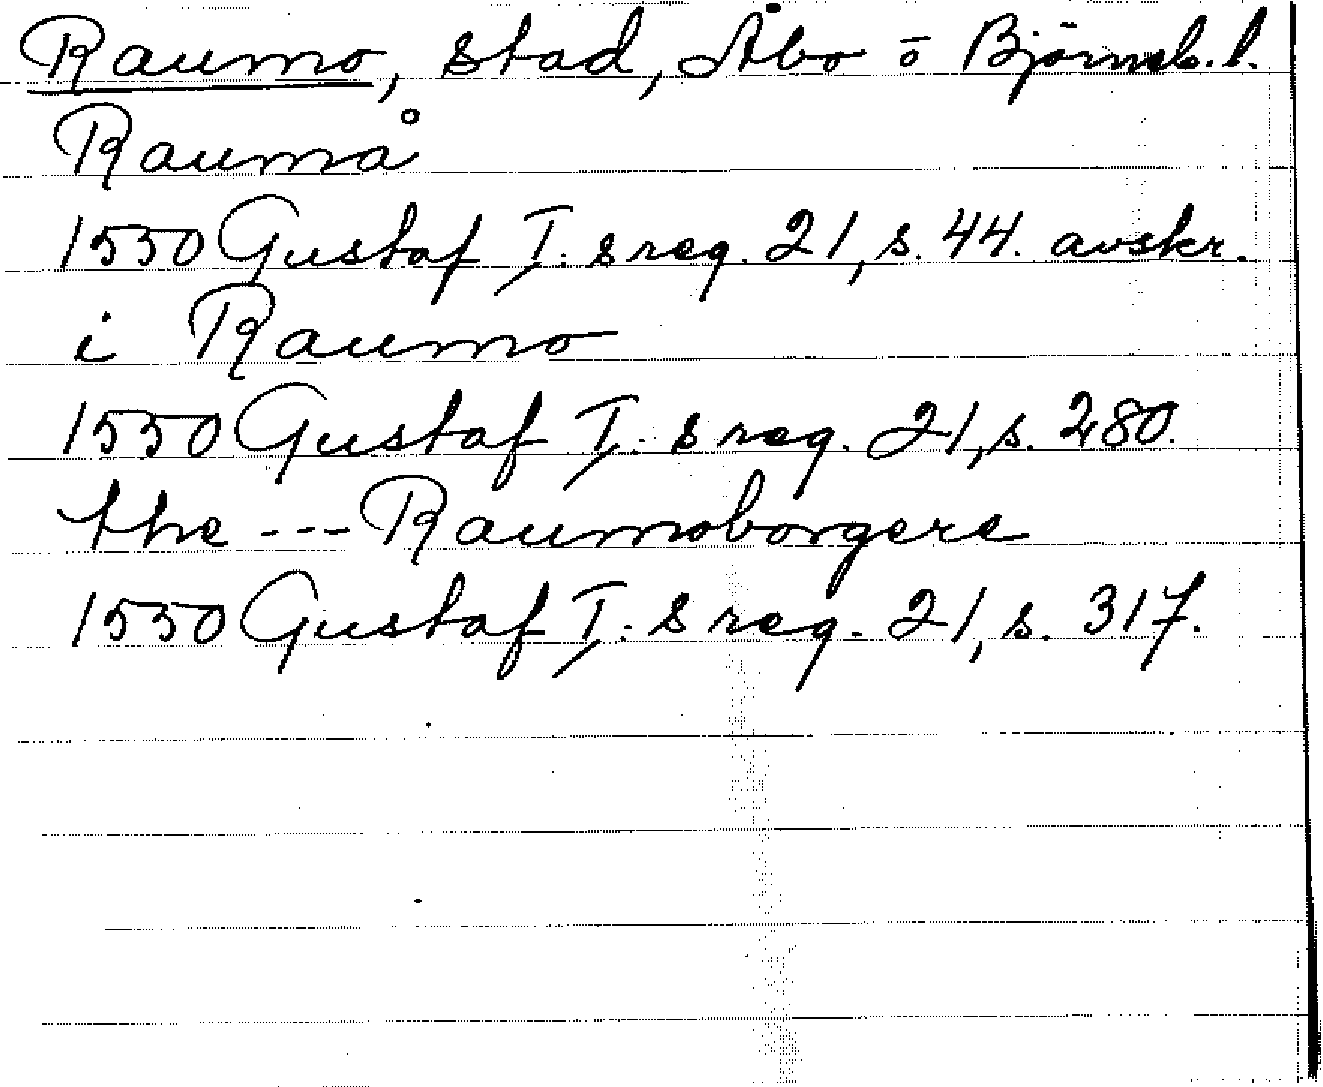 Raumo, stad, Åbo o Björneb. l.
Raumå
1550 Gustaf I:s reg. 21, s. 44. avskr.
i Raumo
1550 Gustaf I:s reg. 21, s. 280.
the --- Raumoborgere
1550 Gustaf I:s reg. 21, s. 317.